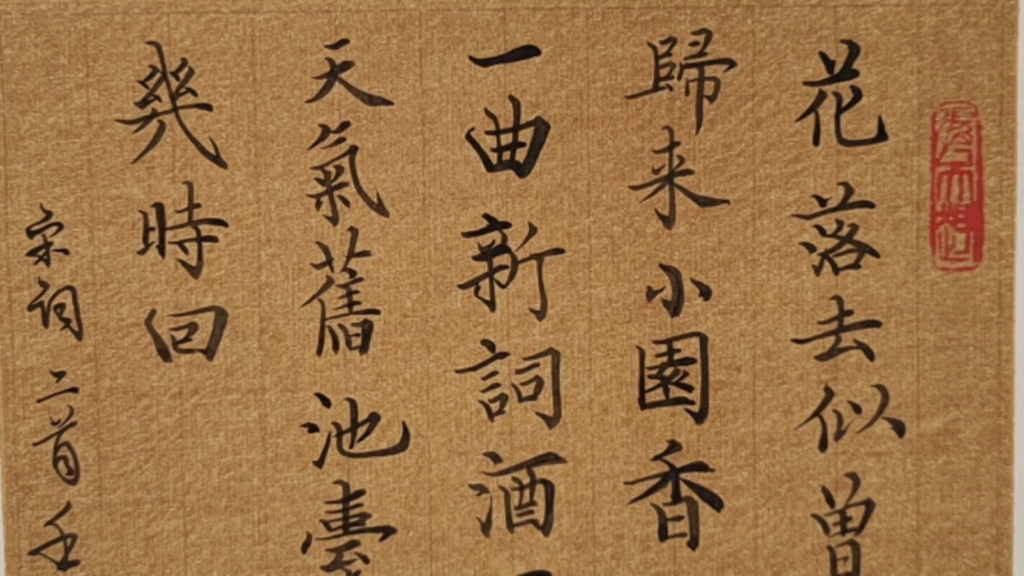 花落去似曾
歸来小園香
一曲新詞酒
天氣舊池臺
幾時回
宋詞二首壬